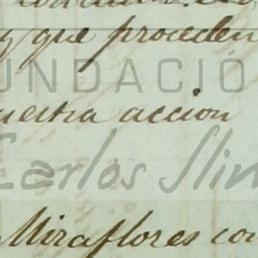 y que proceden
FUNDACIÓ
uestra accion
Carlos Slim
Miraflores con